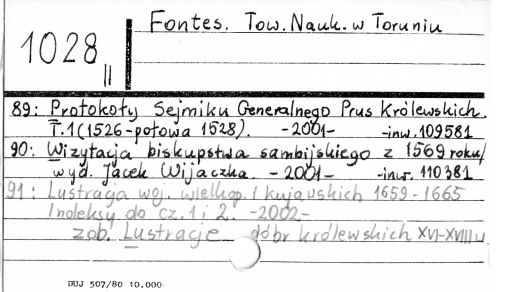 Fontes. Tow. Nauk. w Toruniu
1028
II
89: Protokoły Sejmiku Generalnego Prus Królewskich.
T.1 (1526-połowa 1528). -2001- -inw. 109581
90: Wizytacja biskupstwa sambijskiego z 1569 roku/
wyd. Jacek Wijaczka. -2001- -inw. 110381
91: Lustracja woj. wielkop. i kujawskich 1659-1665
Indeksy do cz. 1 i 2. -2002-
zob. Lustracje dóbr królewskich XVI-XVIII w
DUJ 507/80 10.000